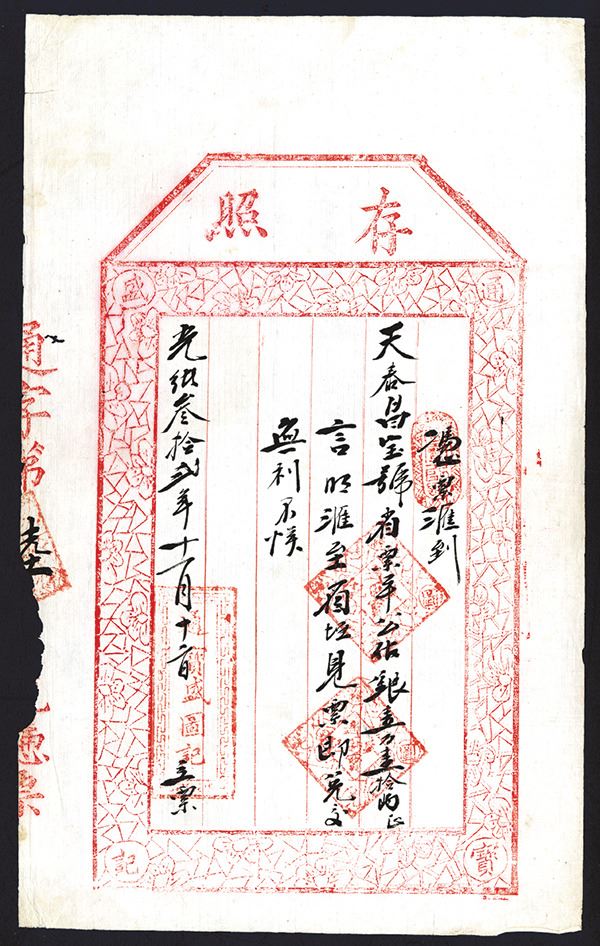 存照
通
寶
盛
記
憑票滙到
天泰昌宝號省票平公估銀壹万壹拾両正
言明滙至省垣見票即兌交
無利不悮
光緒叁拾弍年十一月十二日 立票
盛圖記
通字第
憑票